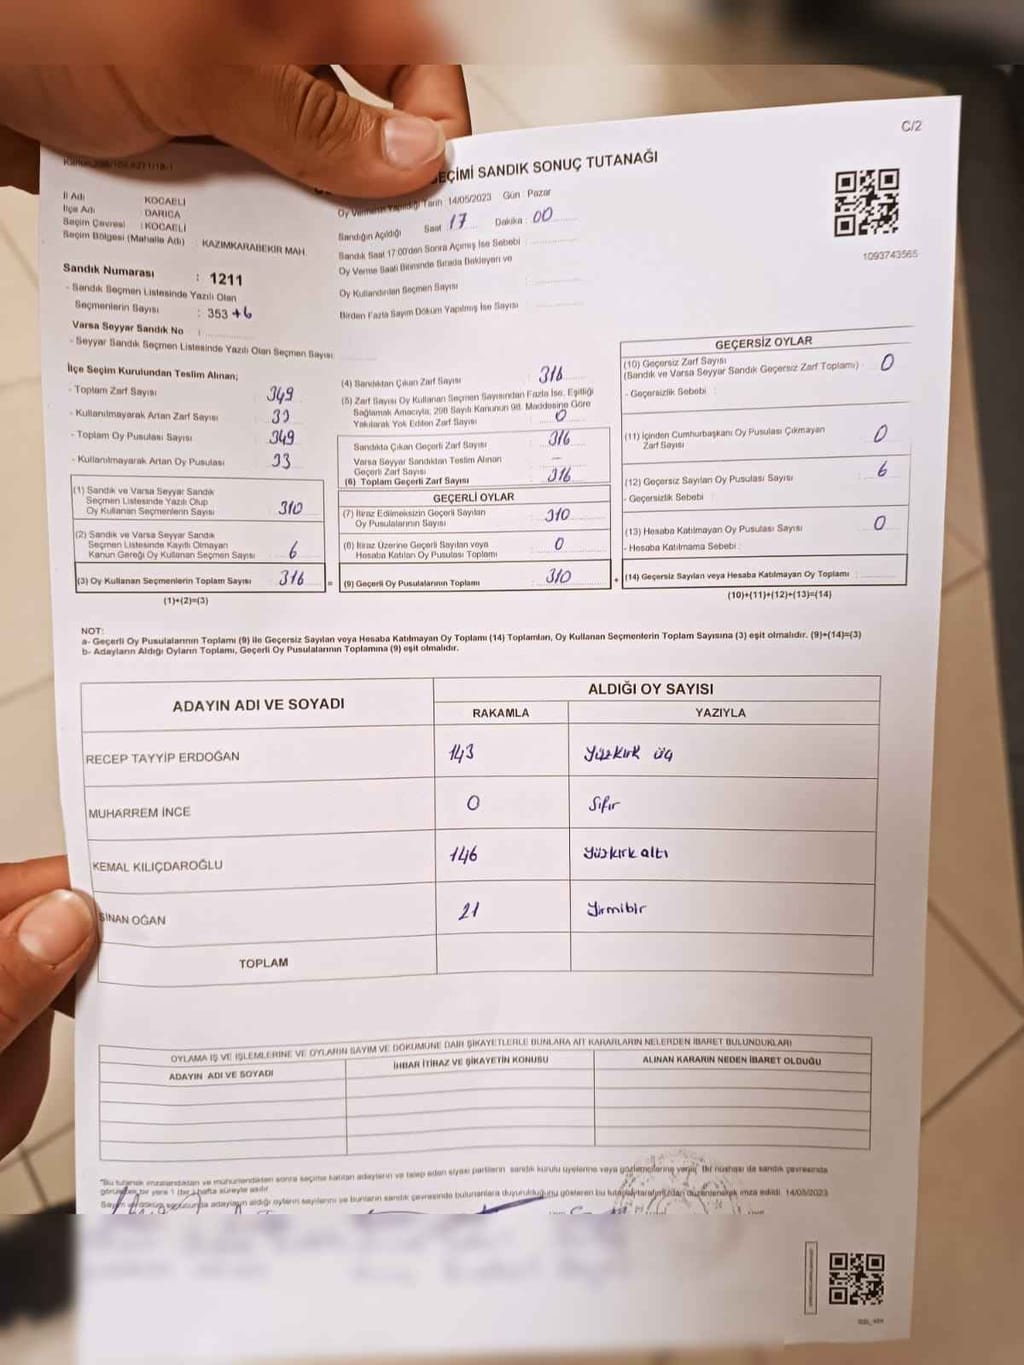 C/2
EÇİMİ SANDIK SONUÇ TUTANAĞI
İl Adı KOCAELİ
İlçe Adı DARICA
Seçim Çevresi : KOCAELİ
Seçim Bölgesi (Mahalle Adı) : KAZIMKARABEKİR MAH.
Tarih 14/05/2023 Gün : Pazar
Sandığın Açıldığı Saat 17 Dakika : 00
Sandık Saat 17:00'den Sonra Açmış İse Sebebi :
Oy Verme Saati Bitiminde Sırada Bekleyen ve
Oy Kullandırılan Seçmen Sayısı :
Birden Fazla Sayım Döküm Yapılmış İse Sayısı :
1093743565
Sandık Numarası : 1211
- Sandık Seçmen Listesinde Yazılı Olan
Seçmenlerin Sayısı : 353 +6
Varsa Seyyar Sandık No :
- Seyyar Sandık Seçmen Listesinde Yazılı Olan Seçmen Sayısı:
İlçe Seçim Kurulundan Teslim Alınan;
- Toplam Zarf Sayısı 349
- Kullanılmayarak Artan Zarf Sayısı 33
- Toplam Oy Pusulası Sayısı 349
- Kullanılmayarak Artan Oy Pusulası 33
(1) Sandık ve Varsa Seyyar Sandık
Seçmen Listesinde Yazılı Olup
Oy Kullanan Seçmenlerin Sayısı 310
(2) Sandık ve Varsa Seyyar Sandık
Seçmen Listesinde Kayıtlı Olmayan
Kanun Gereği Oy Kullanan Seçmen Sayısı 6
(3) Oy Kullanan Seçmenlerin Toplam Sayısı 316 =
(1)+(2)=(3)
(4) Sandıktan Çıkan Zarf Sayısı 316
(5) Zarf Sayısı Oy Kullanan Seçmen Sayısından Fazla İse, Eşitliği
Sağlamak Amacıyla, 298 Sayılı Kanunun 98. Maddesine Göre
Yakılarak Yok Edilen Zarf Sayısı 0
Sandıkta Çıkan Geçerli Zarf Sayısı 316
Varsa Seyyar Sandıktan Teslim Alınan
Geçerli Zarf Sayısı –
(6) Toplam Geçerli Zarf Sayısı 316
GEÇERLİ OYLAR
(7) İtiraz Edilmeksizin Geçerli Sayılan
Oy Pusulalarının Sayısı 310
(8) İtiraz Üzerine Geçerli Sayılan veya
Hesaba Katılan Oy Pusulası Toplamı 0
(9) Geçerli Oy Pusulalarının Toplamı 310 +
GEÇERSİZ OYLAR
(10) Geçersiz Zarf Sayısı
(Sandık ve Varsa Seyyar Sandık Geçersiz Zarf Toplamı) : 0
- Geçersizlik Sebebi :
(11) İçinden Cumhurbaşkanı Oy Pusulası Çıkmayan
Zarf Sayısı 0
(12) Geçersiz Sayılan Oy Pusulası Sayısı 6
- Geçersizlik Sebebi :
(13) Hesaba Katılmayan Oy Pusulası Sayısı 0
- Hesaba Katılmama Sebebi :
(14) Geçersiz Sayılan veya Hesaba Katılmayan Oy Toplamı :
(10)+(11)+(12)+(13)=(14)
NOT:
a- Geçerli Oy Pusulalarının Toplamı (9) ile Geçersiz Sayılan veya Hesaba Katılmayan Oy Toplamı (14) Toplamları, Oy Kullanan Seçmenlerin Toplam Sayısına (3) eşit olmalıdır. (9)+(14)=(3)
b- Adayların Aldığı Oyların Toplamı, Geçerli Oy Pusulalarının Toplamına (9) eşit olmalıdır.
ADAYIN ADI VE SOYADI
ALDIĞI OY SAYISI
RAKAMLA YAZIYLA
RECEP TAYYİP ERDOĞAN 143 Yüzkırk üç
MUHARREM İNCE 0 Sıfır
KEMAL KILIÇDAROĞLU 146 Yüzkırk altı
SİNAN OĞAN 21 Yirmibir
TOPLAM
OYLAMA İŞ VE İŞLEMLERİNE VE OYLARIN SAYIM VE DÖKÜMÜNE DAİR ŞİKAYETLERLE BUNLARA AİT KARARLARIN NELERDEN İBARET BULUNDUKLARI
ADAYIN ADI VE SOYADI İHBAR İTİRAZ VE ŞİKAYETİN KONUSU ALINAN KARARIN NEDEN İBARET OLDUĞU
"Bu tutanak imzalandıktan ve mühürlendikten sonra seçime katılan adayların ve talep eden siyasi partilerin sandık kurulu üyelerine veya gözlemcilerine verilir. Bir nüshası da sandık çevresinde
görülebilen bir yere 1 (bir) hafta süreyle asılır.
adayların aldığı oyların sayılarını ve bunların sandık çevresinde bulunanlara duyurulduğunu gösteren bu tutanak tarafımızdan düzenlenerek imza edildi. 14/05/2023